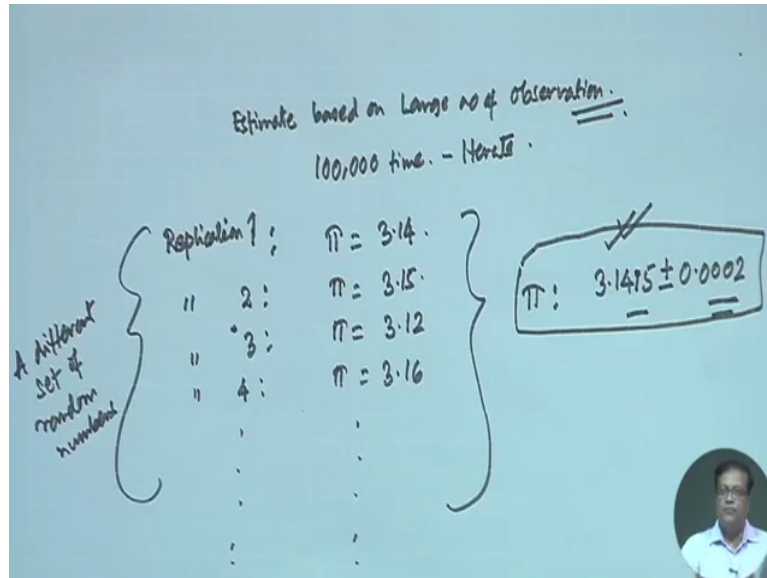 Estimate based on Large no of observation.
100,000 time. - Iterate.
A different
set of
random
numbers
Replication 1: π = 3.14.
" 2: π = 3.15.
" 3: π = 3.12
" 4: π = 3.16
π: 3.1415 ± 0.0002